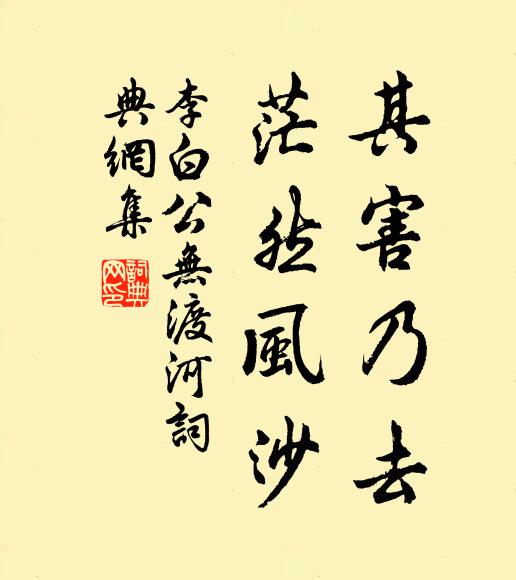 其害乃去
茫然風沙
李白公無渡河詞
典網集
詞典
网印